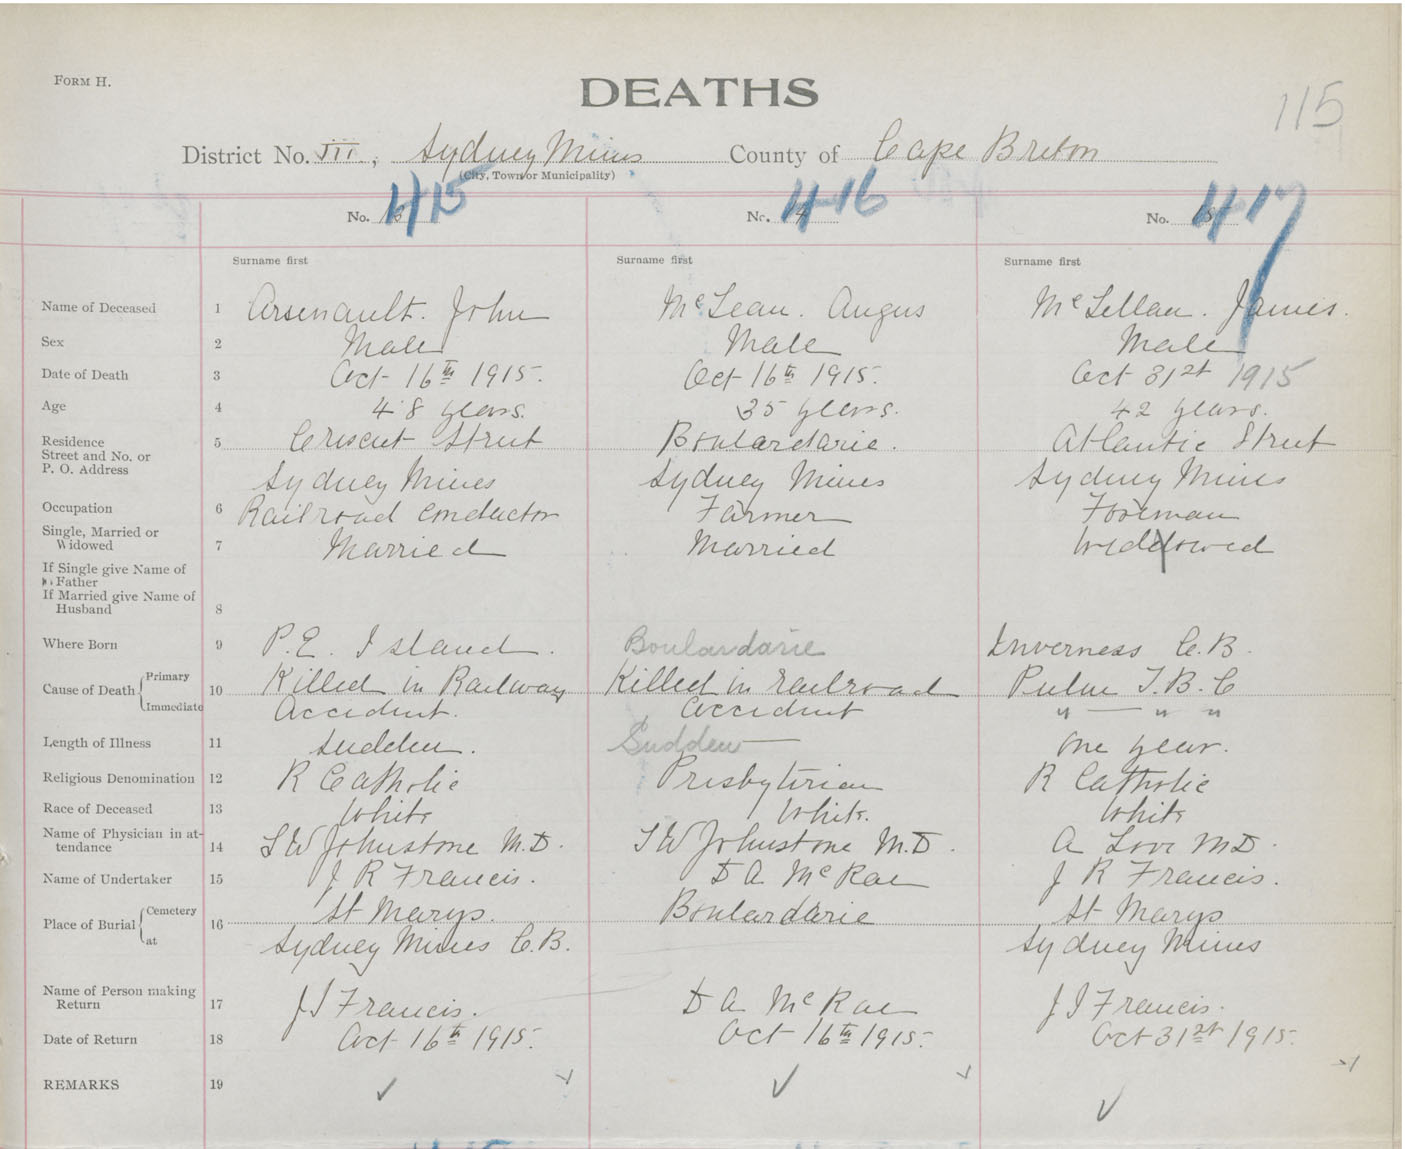 FORM H.
DEATHS
115
District No. III, Sydney Mines County of Cape Breton
(City, Town or Municipality)
No. 415 No. 416 No. 417
Surname first Surname first Surname first
Name of Deceased 1 Arsenault. John McLean. Angus McLellan. James.
Sex 2 Male Male Male
Date of Death 3 Oct 16th 1915. Oct 16th 1915. Oct 31st 1915
Age 4 48 years. 35 years. 42 years.
Residence 5 Crescent Street Boulardarie. Atlantic Street
Street and No. or
P. O. Address Sydney Mines Sydney Mines Sydney Mines
Occupation 6 Railroad Conductor Farmer Foreman
Single, Married or
Widowed 7 Married Married Widdowed
If Single give Name of
Father
If Married give Name of
Husband 8
Where Born 9 P.E. Island. Boulardarie Inverness C.B.
Cause of Death Primary 10 Killed in Railway Killed in railroad Pulm T.B.C
Immediate Accident. accident " — " "
Length of Illness 11 Sudden. Sudden One year.
Religious Denomination 12 R Catholic Presbyterian R Catholic
Race of Deceased 13 White White. White
Name of Physician in at-
tendance 14 L W Johnstone M.D. L W Johnstone M.D. A Love M.D.
Name of Undertaker 15 J R Francis. D A McRae J R Francis.
Place of Burial Cemetery 16 St Marys. Boulardarie St Marys
at Sydney Mines C.B. Sydney Mines
Name of Person making
Return 17 J J Francis. D A McRae J J Francis.
Date of Return 18 Oct 16th 1915. Oct 16th 1915. Oct 31st 1915.
REMARKS 19